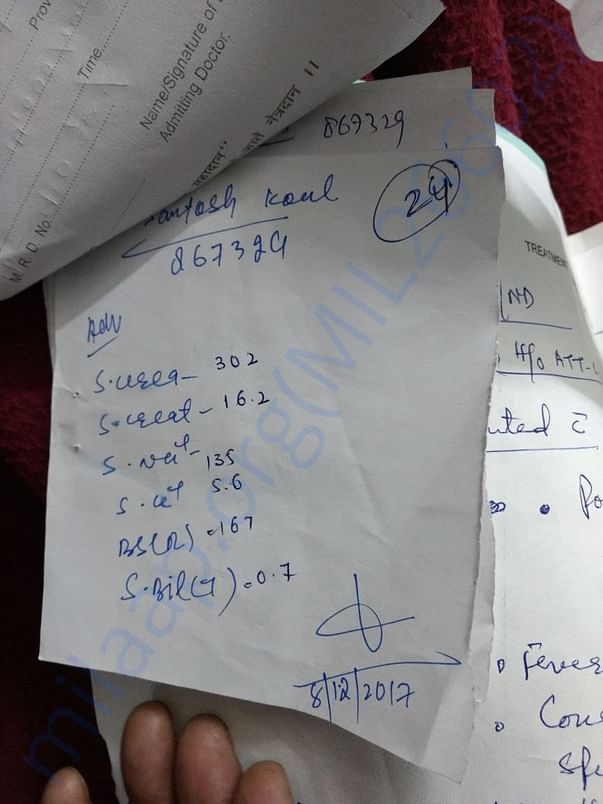 Prov
Time
Name/Signature of
Admitting Doctor.
M R. D No.
नेत्रदान ॥
867329
antosh Koul
24
867329
Adv
S.urea - 302
S.creat - 16.2
S.Na+ - 135
S.K+ 5.6
BS(R) = 167
S.Bil(T) = 0.7
8/12/2017
TREATMEN
ND
H/o ATT-
uted c̄
Fever
Cons
milaap.org(MIL266692)